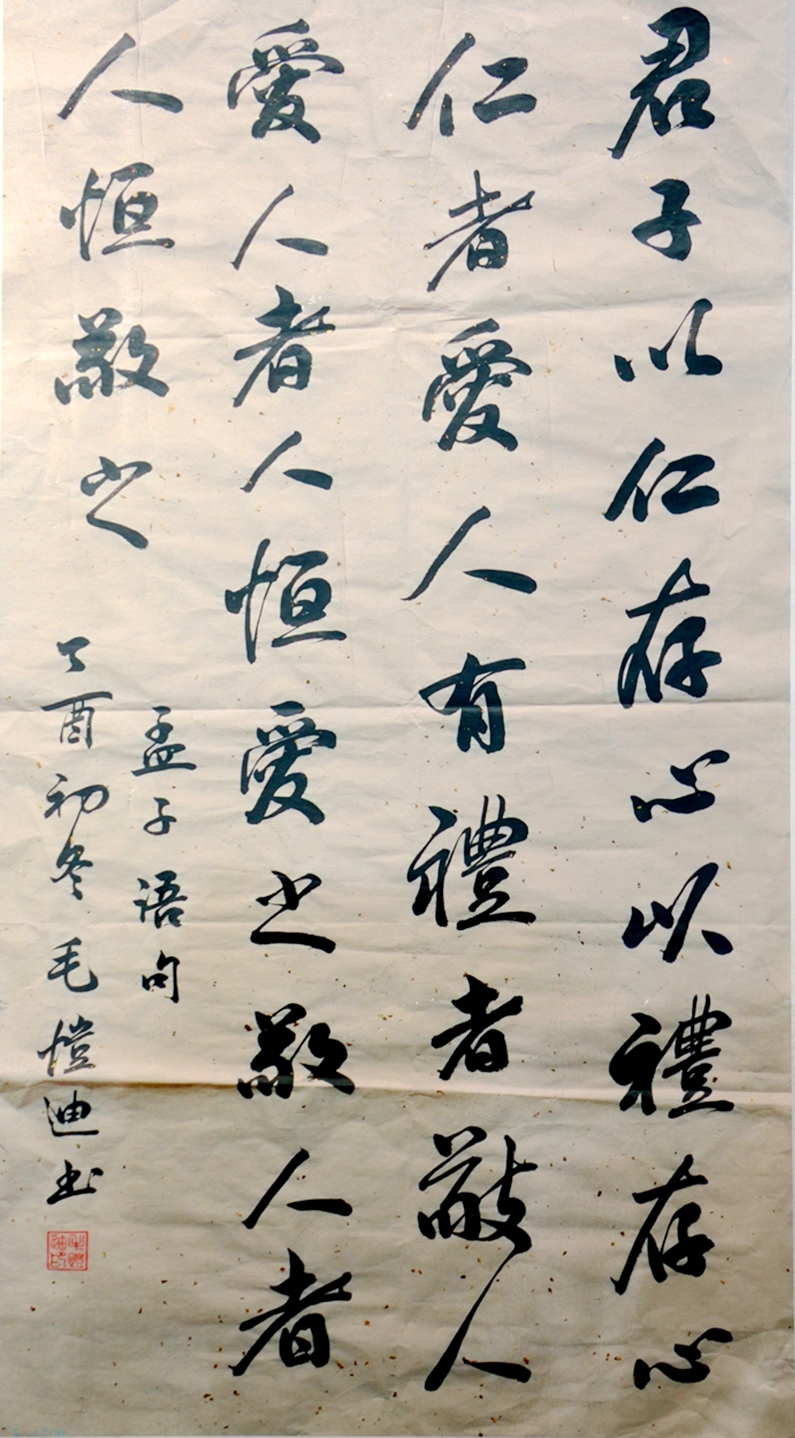 君子以仁存心以禮存心
仁者愛人有禮者敬人
愛人者人恒愛之敬人者
人恒敬之
孟子语句
酉初冬毛愷迪书